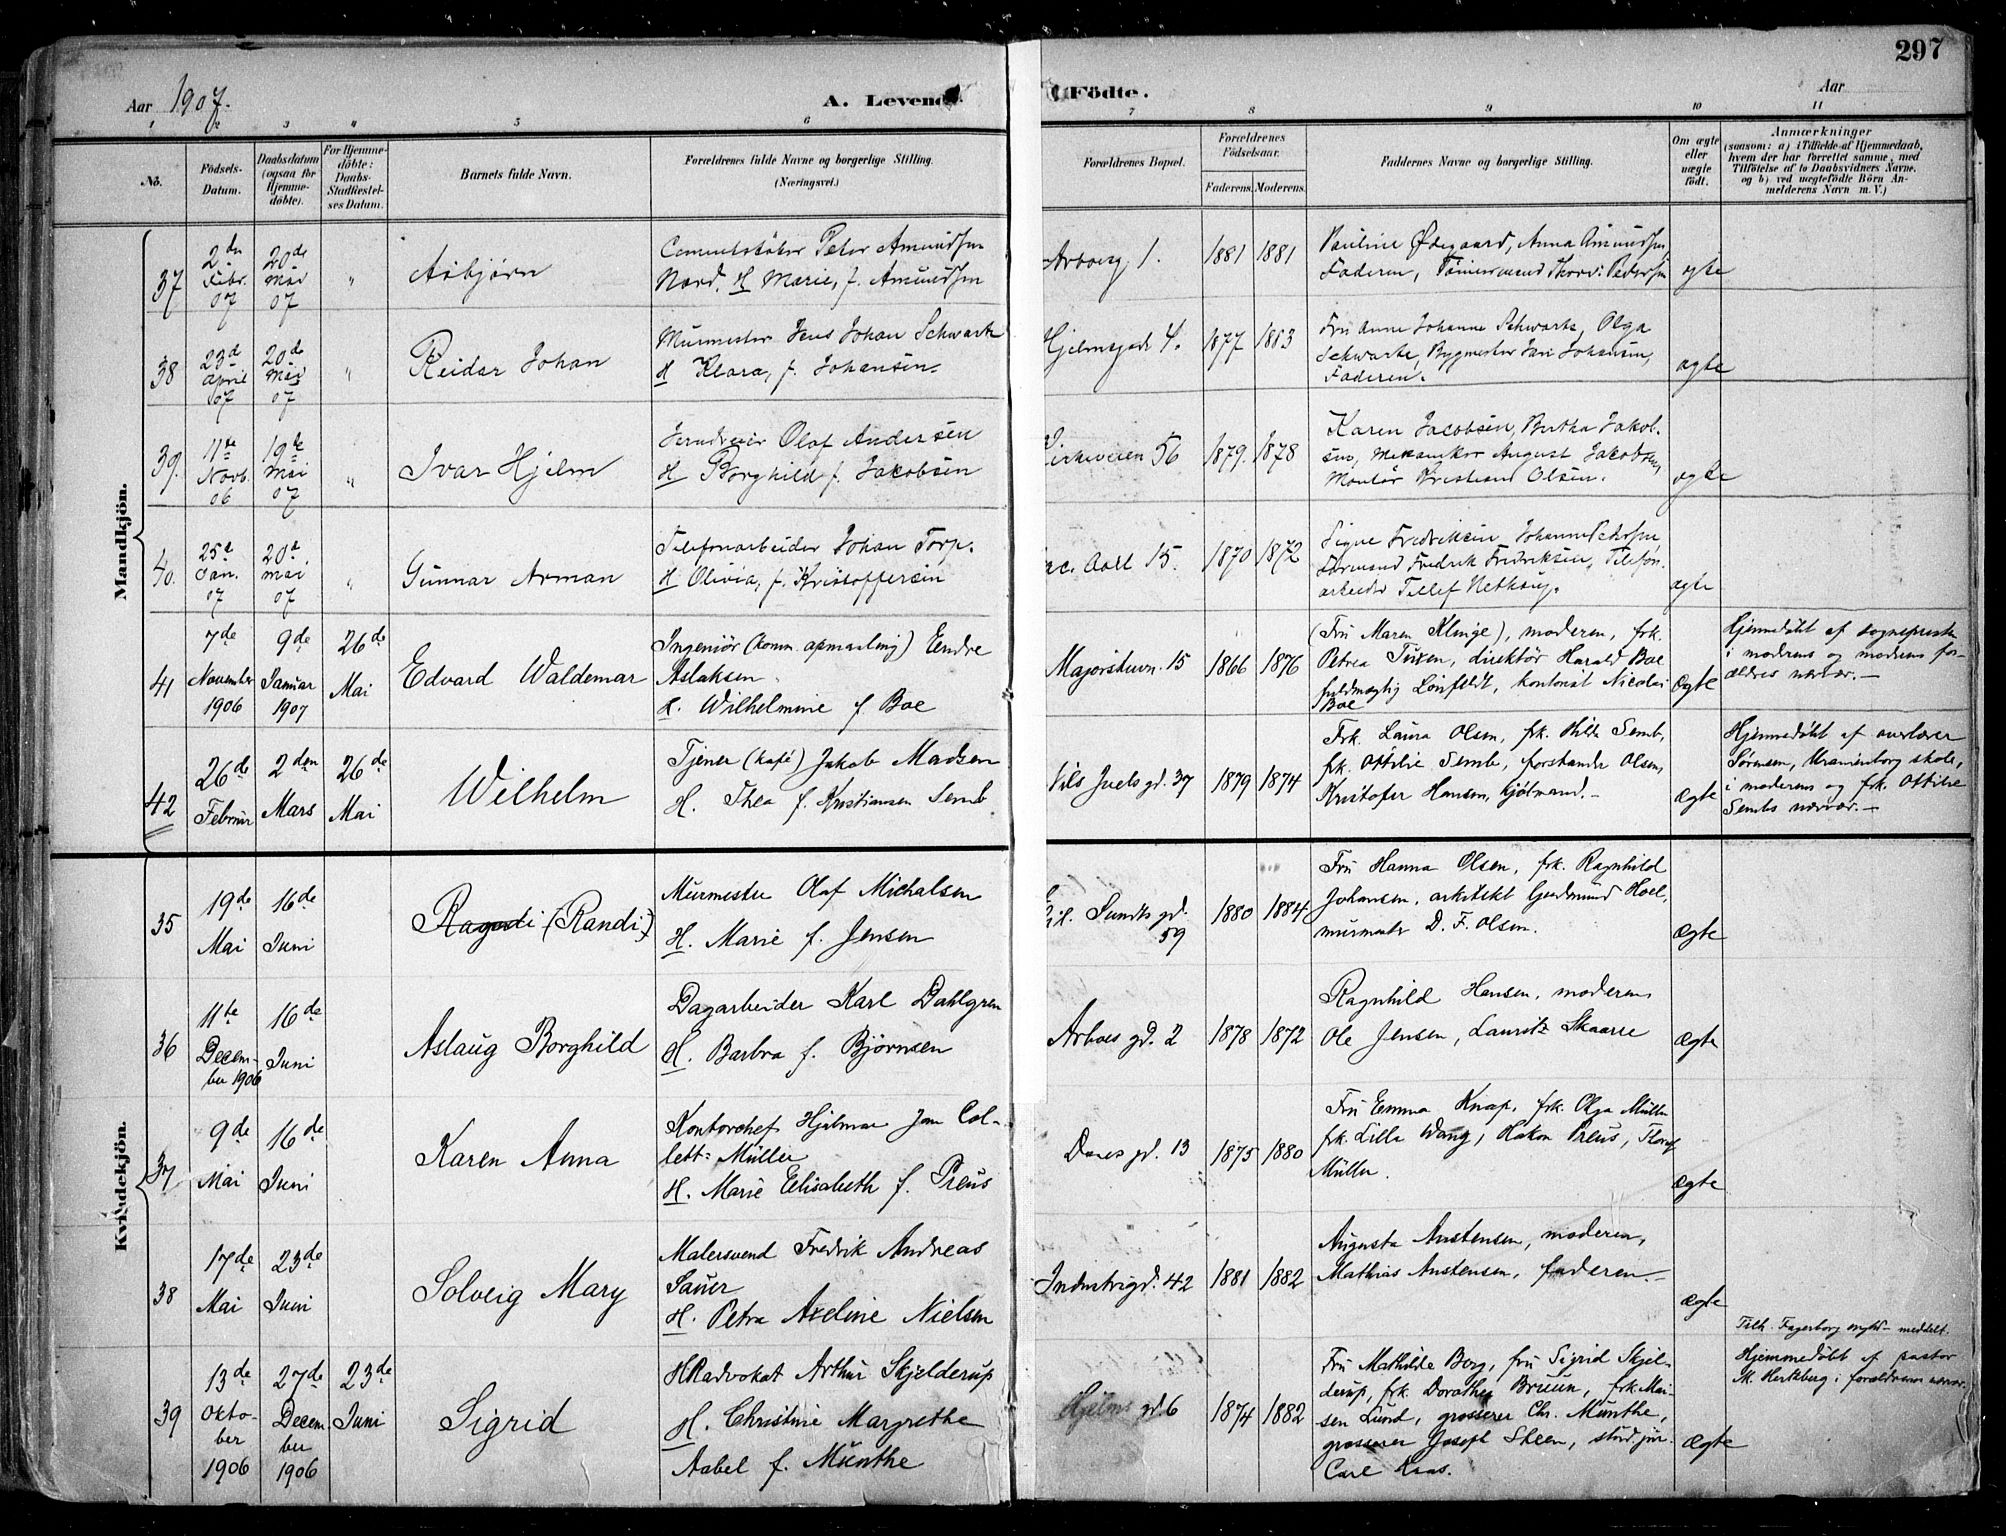 297
Aar 1907.
A. Levende
Födte.
Aar
1 2 3 4 5 6 7 8 9 10 11
No.
Födsels-
Datum.
Daabsdatum
(ogsaa for
Hjemme-
döbte).
For Hjemme-
döbte:
Daabs-
Stadfæstel-
ses Datum.
Barnets fulde Navn.
Forældrenes fulde Navne og borgerlige Stilling.
(Næringsvei.)
Forældrenes Bopæl.
Forældrenes
Födselsaar.
Faderens. Moderens.
Faddernes Navne og borgerlige Stilling.
Om ægte
eller
uægte
födt.
Anmærkninger
(saasom: a) i Tilfælde af Hjemmedaab,
hvem der har forrettet samme, med
Tilföielse af to Daabsvidners Navne.
og b) ved uægtefödte Börn An-
melderens Navn m. V.)
Mandkjön.
37
2den
Febr.
07
20de
Mai
07
"
Asbjørn
Cementstøber Peter Amundsen
Nord. H Marie, f. Amundsen
1.
1881 1881
Pauline Ødegaard, Anna Amundsen
Faderen, Tømmermand Thorv: Pedersen
ægte
38
23d
April
07
20de
Mai
07
"
Reidar Johan
Murmester Jens Johan Schwartz
H Klara, f. Johansen.
Hjelmsgade 4.
1877 1883
Fru Anne Johanne Schwartz, Olga
Schwartz, Bygmester Johansen,
Faderen.
ægte
39.
11te
Novb.
06
19de
Mai
07
"
Ivar Hjelm
Jerndreier Olaf Andersen
H Borghild f. Jakobsen
Kirkeveien 56
1879. 1878
Karen Jacobsen, Bertha Jakob-
sen, Mekaniker August Jakobsen,
Montør Kristian Olsen.
ægte
40.
25d
Jan.
07
20d
Mai
07
"
Gunnar Arman
Telefonarbeider Johan Torp.
H Olivia, f. Kristoffersen
Jac. Aall 15.
1870 1872
Signe Fredriksen, Johanne Pedersen
Formand Fredrik Fredriksen, Telefon-
arbeider Tellef
ægte
41
7de
November
1906
9de
Januar
1907
26de
Mai
Edvard Waldemar
Ingeniør (komm. opmaaling) Eendre
Aslaksen.
H. Wilhelmine f Boe
Majorstuvn. 15
1866 1876
(Fru Maren Klinge), moderen, frk.
Petrea Tuxen, direktør Harald Boe
fuldmægtig Lønfeldt, kontorist Nicolai
Boe
Ægte
Hjemmedøbt af sognepresten
i moderens og moderens for-
ældres nærvær. —
42
26de
Februar
2den
Mars
26de
Mai
Wilhelm
Tjener (kafé) Jakob Madsen
H. Thea f. Kristiansen Semb
Nils Juels gd. 37
1879 1874
Frk. Laura Olsen, frk. Hilda Semb,
frk. Ottilie Semb, forstander Olsen,
Kristofer Hansen, kjølmand. —
Ægte
Hjemmedøbt af overlærer
Sørensen, Uranienborg skole,
i moderens og frk. Ottilie
Sembs nærvær. —
Kvindekjön.
35
19de
Mai
16de
Juni
(Randi)
Murmester Olaf Michalsen
H. Marie f. Jensen
Eil. Sundts gd.
59
1880 1884
Fru Hanna Olsen, frk. Ragnhild
Johansen, arkitekt Gudmund Hoel,
murmester D. F. Olsen.
Ægte
36
11te
Decem-
ber 1906
16de
Juni
Aslaug Borghild
Dagarbeider Karl Dahlgren
H. Barbra f. Bjørnsen
Arboes gd. 2
1878 1872
Ragnhild Hansen, moderen
Ole Jensen, Lauritz Skaarre
Ægte
37
9de
Mai
16de
Juni
Karen Anna
Kontorchef Hjalmar Jon Col-
lett= Müller
H. Marie Elisabeth f. Preus
Daaes gd. 13
1875 1880
Fru Emma Knap, frk. Olga Müller
frk. Lilla Wang, Hakon Preus, Thorolf
Müller.
Ægte
38
17de
Mai
23de
Juni
Solveig Mary
Malersvend Fredrik Andreas
Sauer
H. Petra Axeline Nielsen
Industrigd. 42
1881 1882
Augusta Austensen, moderen,
Mathias Austensen, faderen. —
Ægte
39
13de
Okto-
ber
1906
27de
Decem-
ber
1906
23de
Juni
Sigrid
HRadvokat Arthur Skjelderup
H. Christine Margrethe
Aabel f. Munthe
Hjelms gd. 6
1874 1882
Fru Mathilde Borg, fru Sigrid Skjel-
derup, frk. Dorothea Bruun, frk. Mai-
sen Lund, grosserer Chr. Munthe,
grosserer Joseph Steen, stud. jur.
Carl Kaas.
Ægte
Tilh. Fagerborg meddelt.
Hjemmedøbt af pastor
M. Hertzberg i forældrenes nærvær.